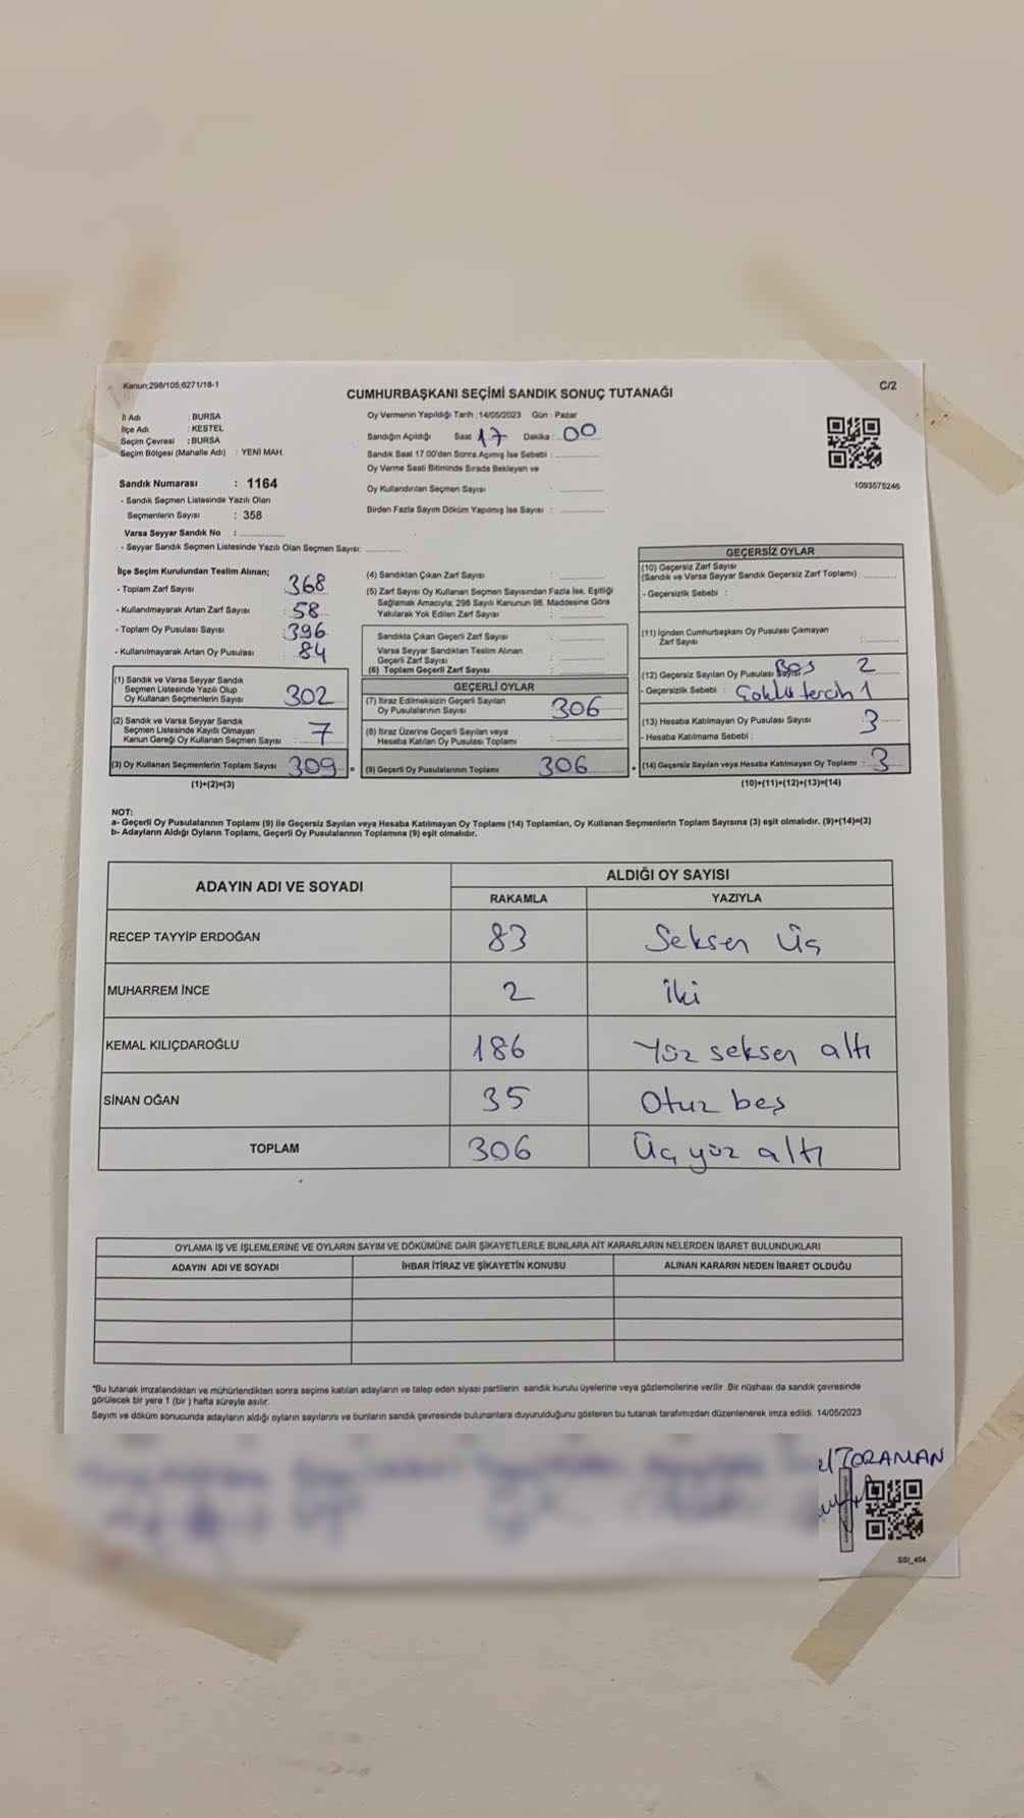 Kanun;298/105;6271/18-1
C/2
CUMHURBAŞKANI SEÇİMİ SANDIK SONUÇ TUTANAĞI
İl Adı : BURSA
İlçe Adı : KESTEL
Seçim Çevresi : BURSA
Seçim Bölgesi (Mahalle Adı) : YENİ MAH.
Oy Vermenin Yapıldığı Tarih : 14/05/2023 Gün : Pazar
Sandığın Açıldığı Saat 17 Dakika : 00
Sandık Saat 17.00'den Sonra Açımış İse Sebebi :
Oy Verme Saati Bitiminde Sırada Bekleyen ve
Oy Kullandırılan Seçmen Sayısı :
Birden Fazla Sayım Döküm Yapılmış İse Sayısı :
1093575246
Sandık Numarası : 1164
- Sandık Seçmen Listesinde Yazılı Olan
Seçmenlerin Sayısı : 358
Varsa Seyyar Sandık No :
- Seyyar Sandık Seçmen Listesinde Yazılı Olan Seçmen Sayısı:
İlçe Seçim Kurulundan Teslim Alınan;
- Toplam Zarf Sayısı : 368
- Kullanılmayarak Artan Zarf Sayısı : 58
- Toplam Oy Pusulası Sayısı : 396
- Kullanılmayarak Artan Oy Pusulası : 84
(1) Sandık ve Varsa Seyyar Sandık
Seçmen Listesinde Yazılı Olup
Oy Kullanan Seçmenlerin Sayısı : 302
(2) Sandık ve Varsa Seyyar Sandık
Seçmen Listesinde Kayıtlı Olmayan
Kanun Gereği Oy Kullanan Seçmen Sayısı : 7
(3) Oy Kullanan Seçmenlerin Toplam Sayısı : 309
(1)+(2)=(3)
(4) Sandıktan Çıkan Zarf Sayısı :
(5) Zarf Sayısı Oy Kullanan Seçmen Sayısından Fazla İse, Eşitliği
Sağlamak Amacıyla, 298 Sayılı Kanunun 98. Maddesine Göre
Yakılarak Yok Edilen Zarf Sayısı :
Sandıkta Çıkan Geçerli Zarf Sayısı :
Varsa Seyyar Sandıktan Teslim Alınan
Geçerli Zarf Sayısı :
(6) Toplam Geçerli Zarf Sayısı :
GEÇERLİ OYLAR
(7) İtiraz Edilmeksizin Geçerli Sayılan
Oy Pusulalarının Sayısı : 306
(8) İtiraz Üzerine Geçerli Sayılan veya
Hesaba Katılan Oy Pusulası Toplamı :
(9) Geçerli Oy Pusulalarının Toplamı : 306
GEÇERSİZ OYLAR
(10) Geçersiz Zarf Sayısı
(Sandık ve Varsa Seyyar Sandık Geçersiz Zarf Toplamı) :
- Geçersizlik Sebebi :
(11) İçinden Cumhurbaşkanı Oy Pusulası Çıkmayan
Zarf Sayısı :
(12) Geçersiz Sayılan Oy Pusulası Sayısı : Boş 2
- Geçersizlik Sebebi : Çoklu tercih 1
(13) Hesaba Katılmayan Oy Pusulası Sayısı : 3
- Hesaba Katılmama Sebebi :
(14) Geçersiz Sayılan veya Hesaba Katılmayan Oy Toplamı : 3
(10)+(11)+(12)+(13)=(14)
NOT:
a- Geçerli Oy Pusulalarının Toplamı (9) ile Geçersiz Sayılan veya Hesaba Katılmayan Oy Toplamı (14) Toplamları, Oy Kullanan Seçmenlerin Toplam Sayısına (3) eşit olmalıdır. (9)+(14)=(3)
b- Adayların Aldığı Oyların Toplamı, Geçerli Oy Pusulalarının Toplamına (9) eşit olmalıdır.
ADAYIN ADI VE SOYADI
ALDIĞI OY SAYISI
RAKAMLA YAZIYLA
RECEP TAYYİP ERDOĞAN 83 Seksen Üç
MUHARREM İNCE 2 iki
KEMAL KILIÇDAROĞLU 186 Yüz seksen altı
SİNAN OĞAN 35 Otuz beş
TOPLAM 306 Üç yüz altı
OYLAMA İŞ VE İŞLEMLERİNE VE OYLARIN SAYIM VE DÖKÜMÜNE DAİR ŞİKAYETLERLE BUNLARA AİT KARARLARIN NELERDEN İBARET BULUNDUKLARI
ADAYIN ADI VE SOYADI İHBAR İTİRAZ VE ŞİKAYETİN KONUSU ALINAN KARARIN NEDEN İBARET OLDUĞU
*Bu tutanak imzalandıktan ve mühürlendikten sonra seçime katılan adayların ve talep eden siyasi partilerin sandık kurulu üyelerine veya gözlemcilerine verilir. Bir nüshası da sandık çevresinde
görülecek bir yere 1 (bir) hafta süreyle asılır.
Sayım ve döküm sonucunda adayların aldığı oyların sayılarını ve bunların sandık çevresinde bulunanlara duyurulduğunu gösteren bu tutanak tarafımızdan düzenlenerek imza edildi. 14/05/2023
TORAMAN
SSI_404